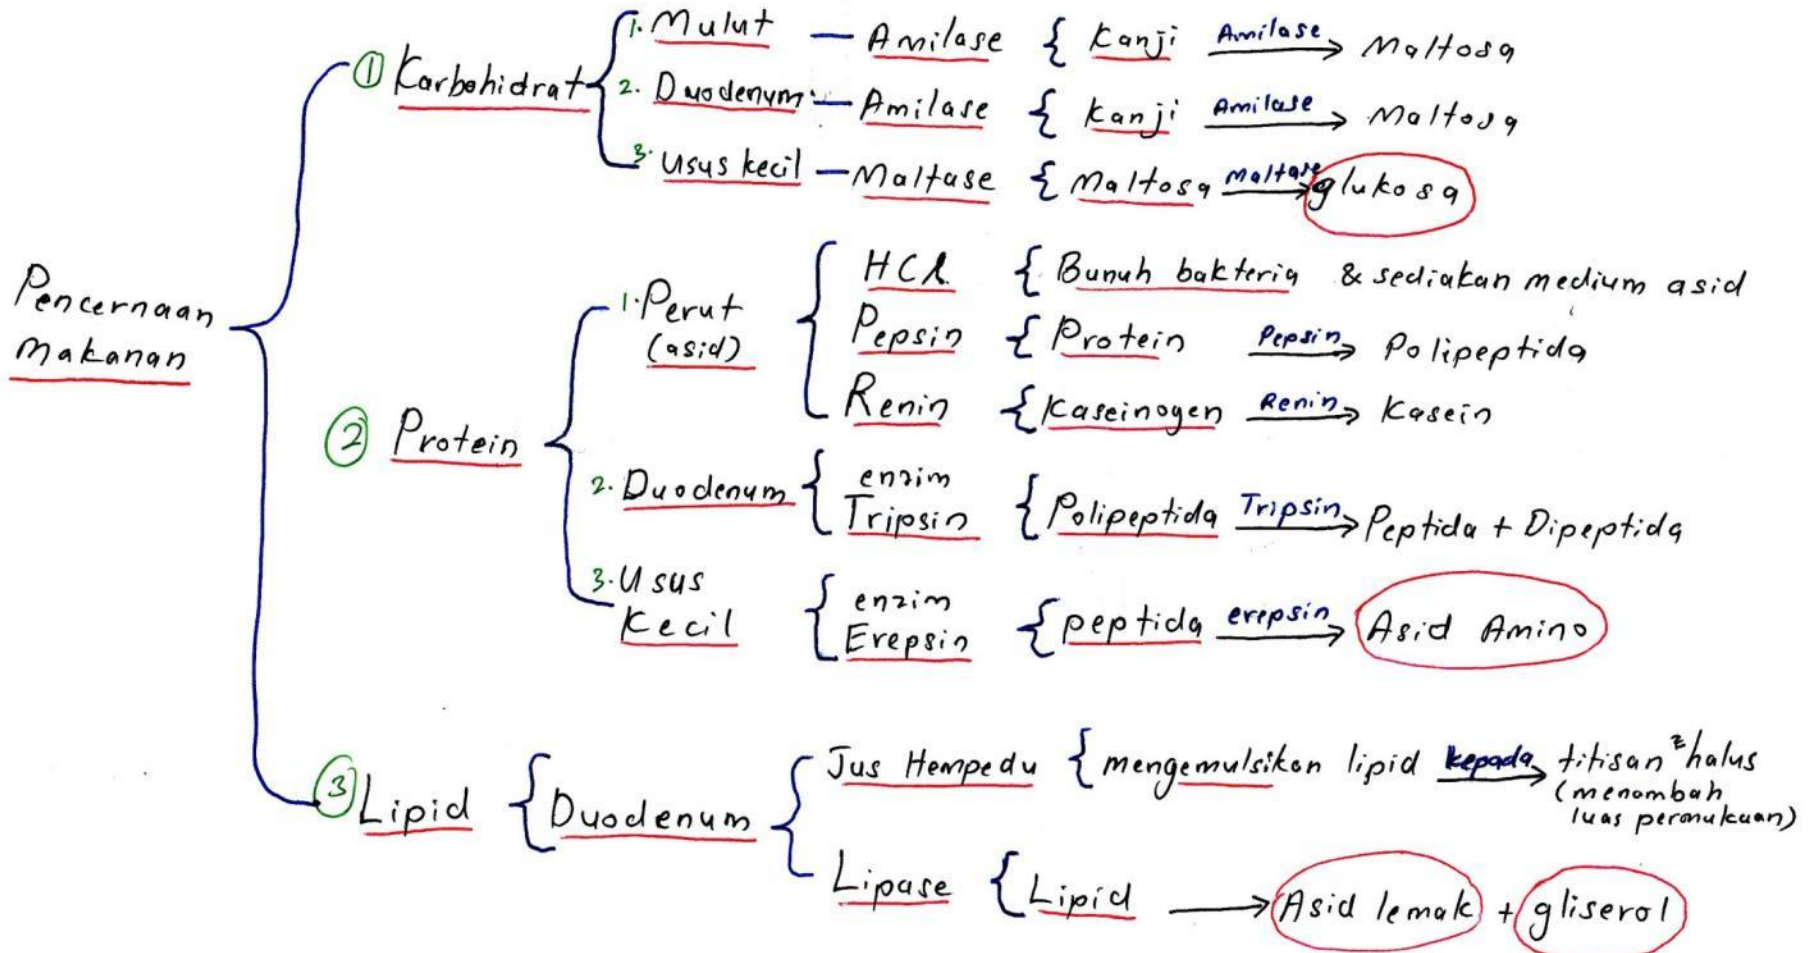 Pencernaan
Makanan
① Karbohidrat
1. Mulut — Amilase { Kanji Amilase → Maltosa
2. Duodenum — Amilase { Kanji Amilase → Maltosa
3. Usus kecil — Maltase { Maltosa Maltase → glukosa
② Protein
1. Perut
(asid)
HCl { Bunuh bakteria & sediakan medium asid
Pepsin { Protein Pepsin → Polipeptida
Renin { Kaseinogen Renin → Kasein
2. Duodenum { enzim
Tripsin { Polipeptida Tripsin → Peptida + Dipeptida
3. Usus
Kecil
enzim
Erepsin { peptida erepsin → Asid Amino
③ Lipid { Duodenum
Jus Hempedu { mengemulsikan lipid kepada → titisan² halus
(menambah
luas permukaan)
Lipase { Lipid → Asid lemak + gliserol